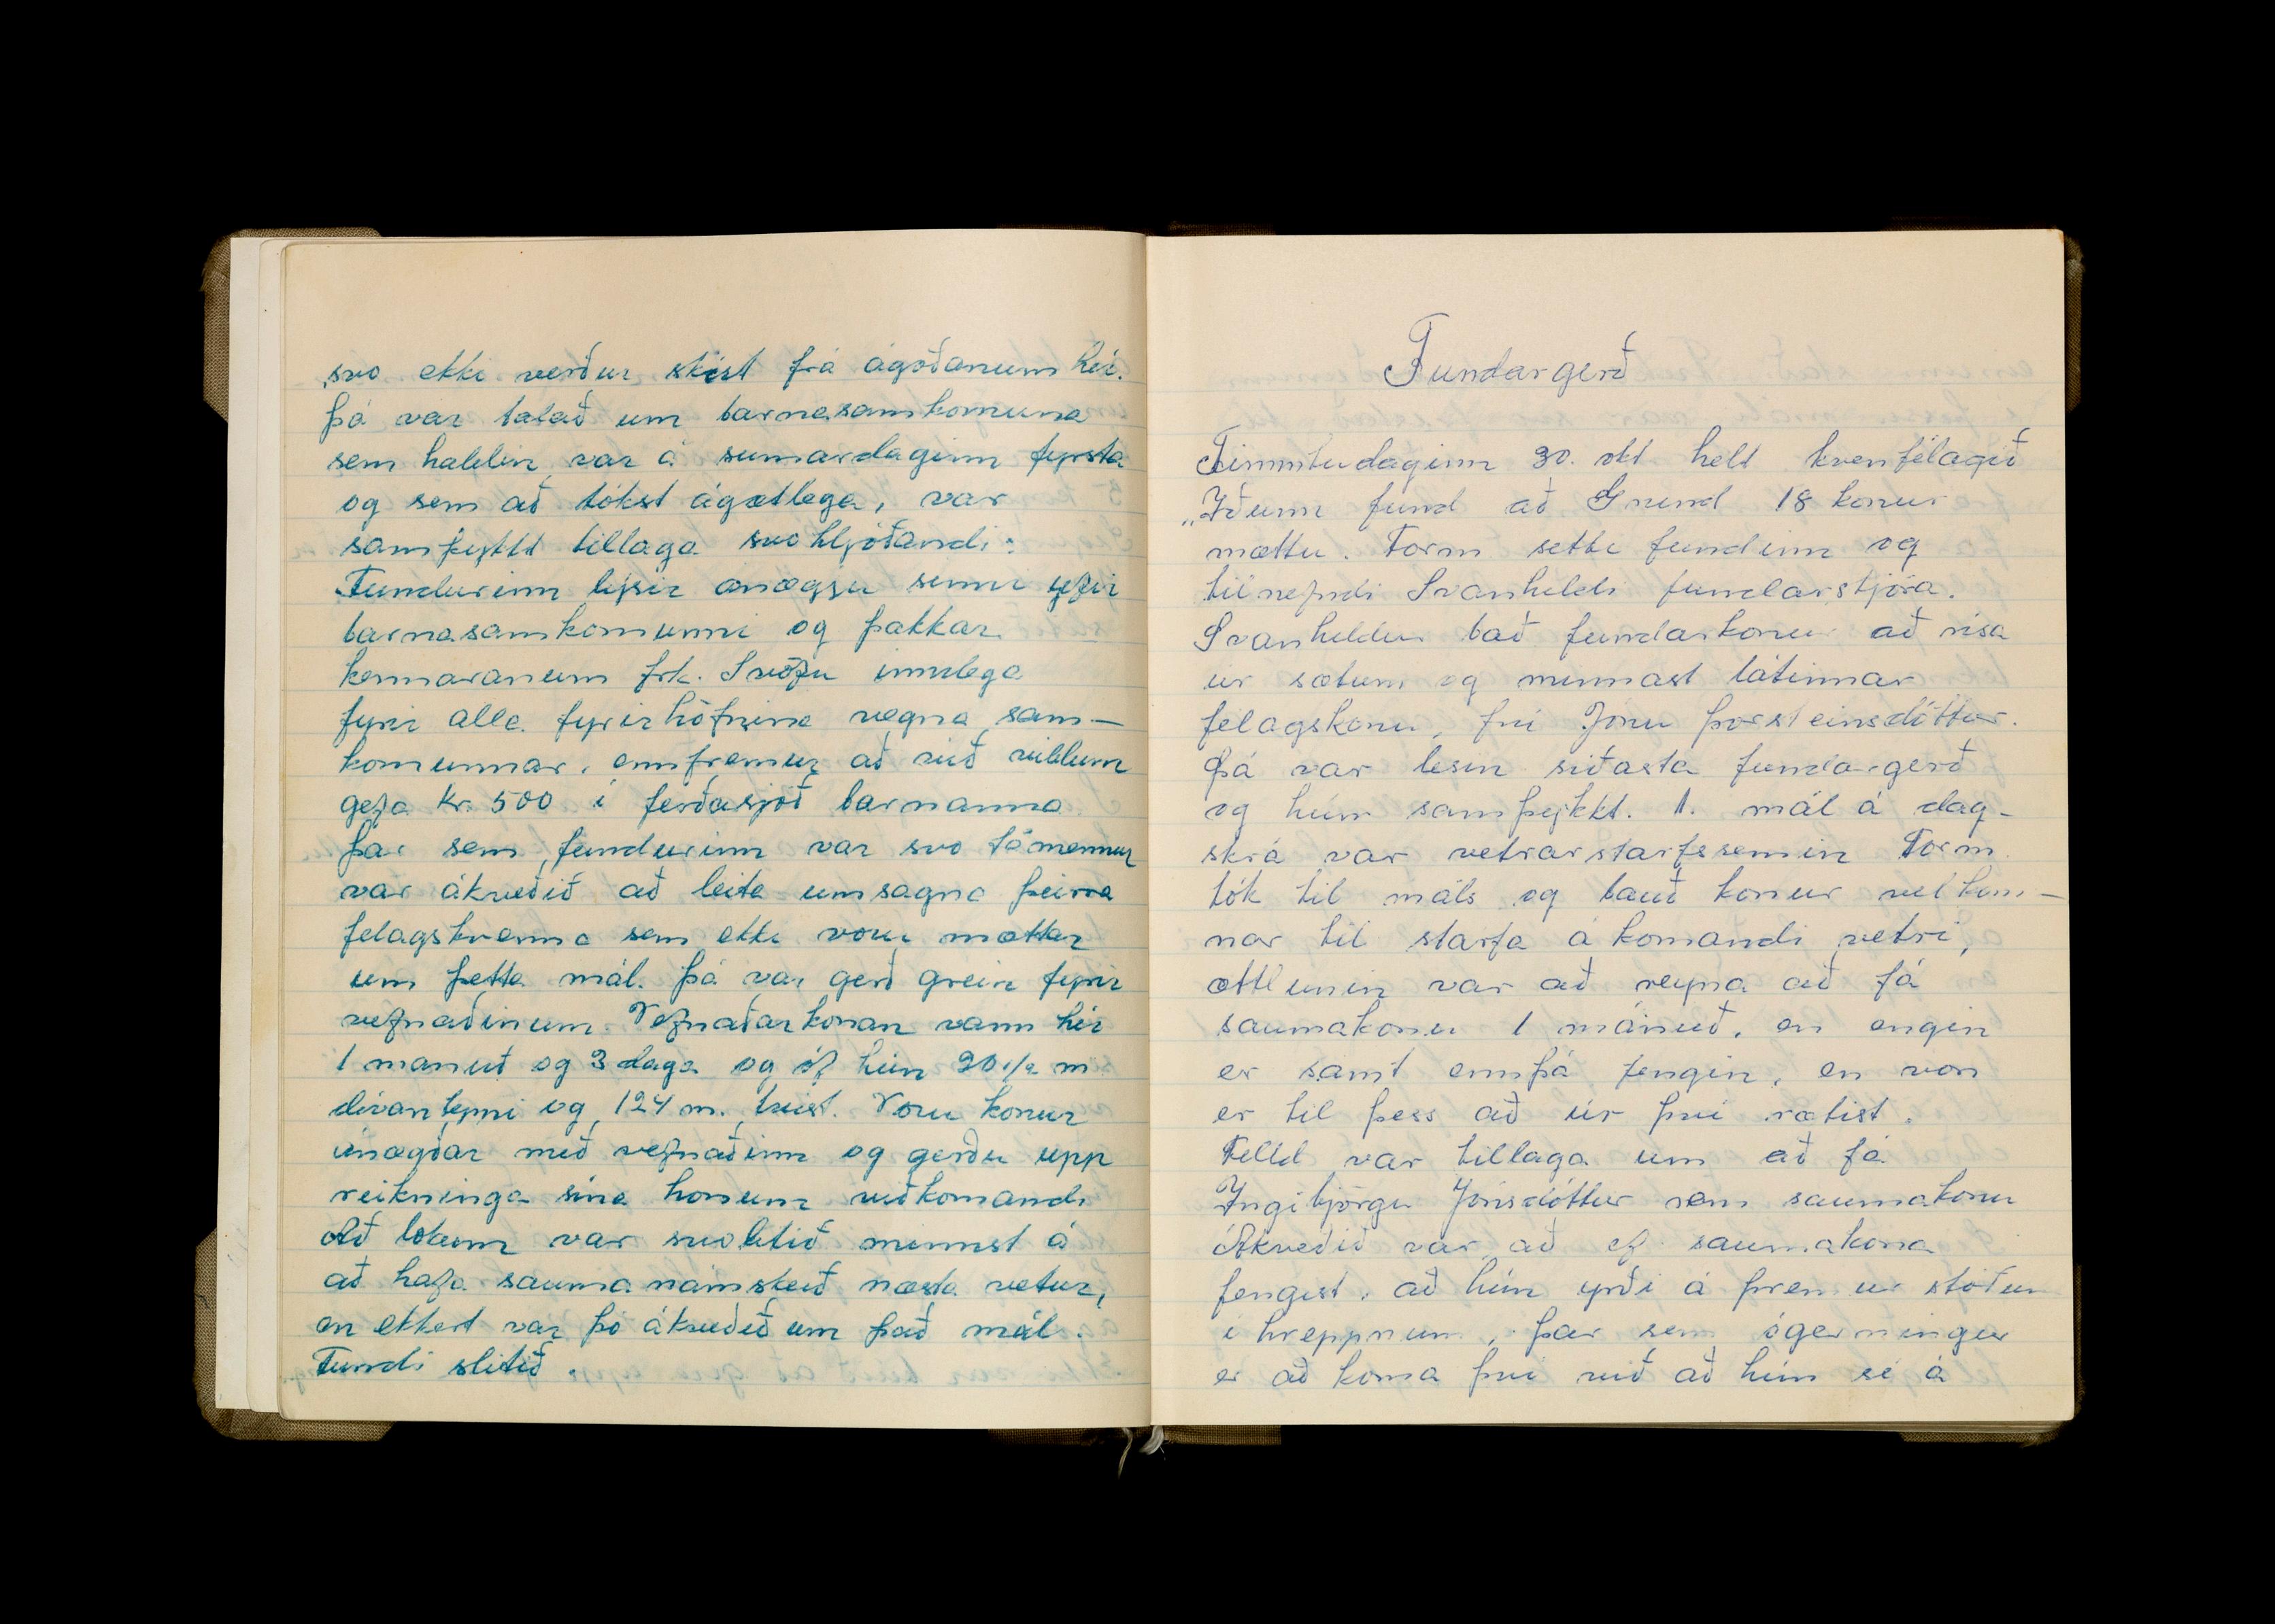 svo ekki verður skíst frá ágóðanum hér.
þá var talað um barnasamkomuna
sem haldin var á sumardaginn fyrsta
og sem að tókst ágætlega, var
samþykkt tillaga svohljóðandi:
Fundurinn lýsir ánægju sinni yfir
barnasamkomunni og þakkar
kennaranum frk. Svöfu innilega
fyrir alla fyrirhöfnina vegna sam-
komunnar, ennfremur að við vildum
gefa kr. 500 í ferðasjóð barnanna
þar sem fundurinn var svo fámennur
var ákveðið að leita umsagna þeirra
felagskvenna sem ekki voru mættar
um þetta mál. þá var gerð grein fyrir
vefnaðinum. Vefnaðarkonan vann hér
1 manuð og 3 daga og óf hún 20 1/2 m
dívanteppi og 124 m. tvist. Voru konur
ánægðar með vefnaðinn og gerðu upp
reikninga sína honum viðkomandi
Að lokum var svolítið minnst á
að hafa sauma námskeið næsta vetur,
en ekkert var þó ákveðið um það mál.
Fundi slitið.
Fundargerð
Fimmtudaginn 30. okt helt kvenfélagið
„Iðunn fund að Grund 18 konur
mættu. Form setti fundinn og
tilnefndi Svanhildi fundarstjóra.
Svanhildur bað fundarkonur að rísa
úr sætum og minnast látinnar
felagskonu, frú Jónu þorsteinsdóttur.
þá var lesin síðasta fundargerð
og hún samþykkt. 1. mál á dag-
skrá var vetrarstarfssemin Form
tók til máls og bauð konur velkom-
nar til starfa á komandi vetri,
ætlunin var að reyna að fá
saumakonu 1 mánuð, en engin
er samt ennþá fengin, en von
er til þess að úr því rætist.
Felld var tillaga um að fá
Ingibjörgu Jónsdóttur sem saumakonu
Ákveðið var að ef saumakona
fengist, að hún yrði á þremur stöðum
í hreppnum, þar sem ógerningur
er að koma því við að hún sé á